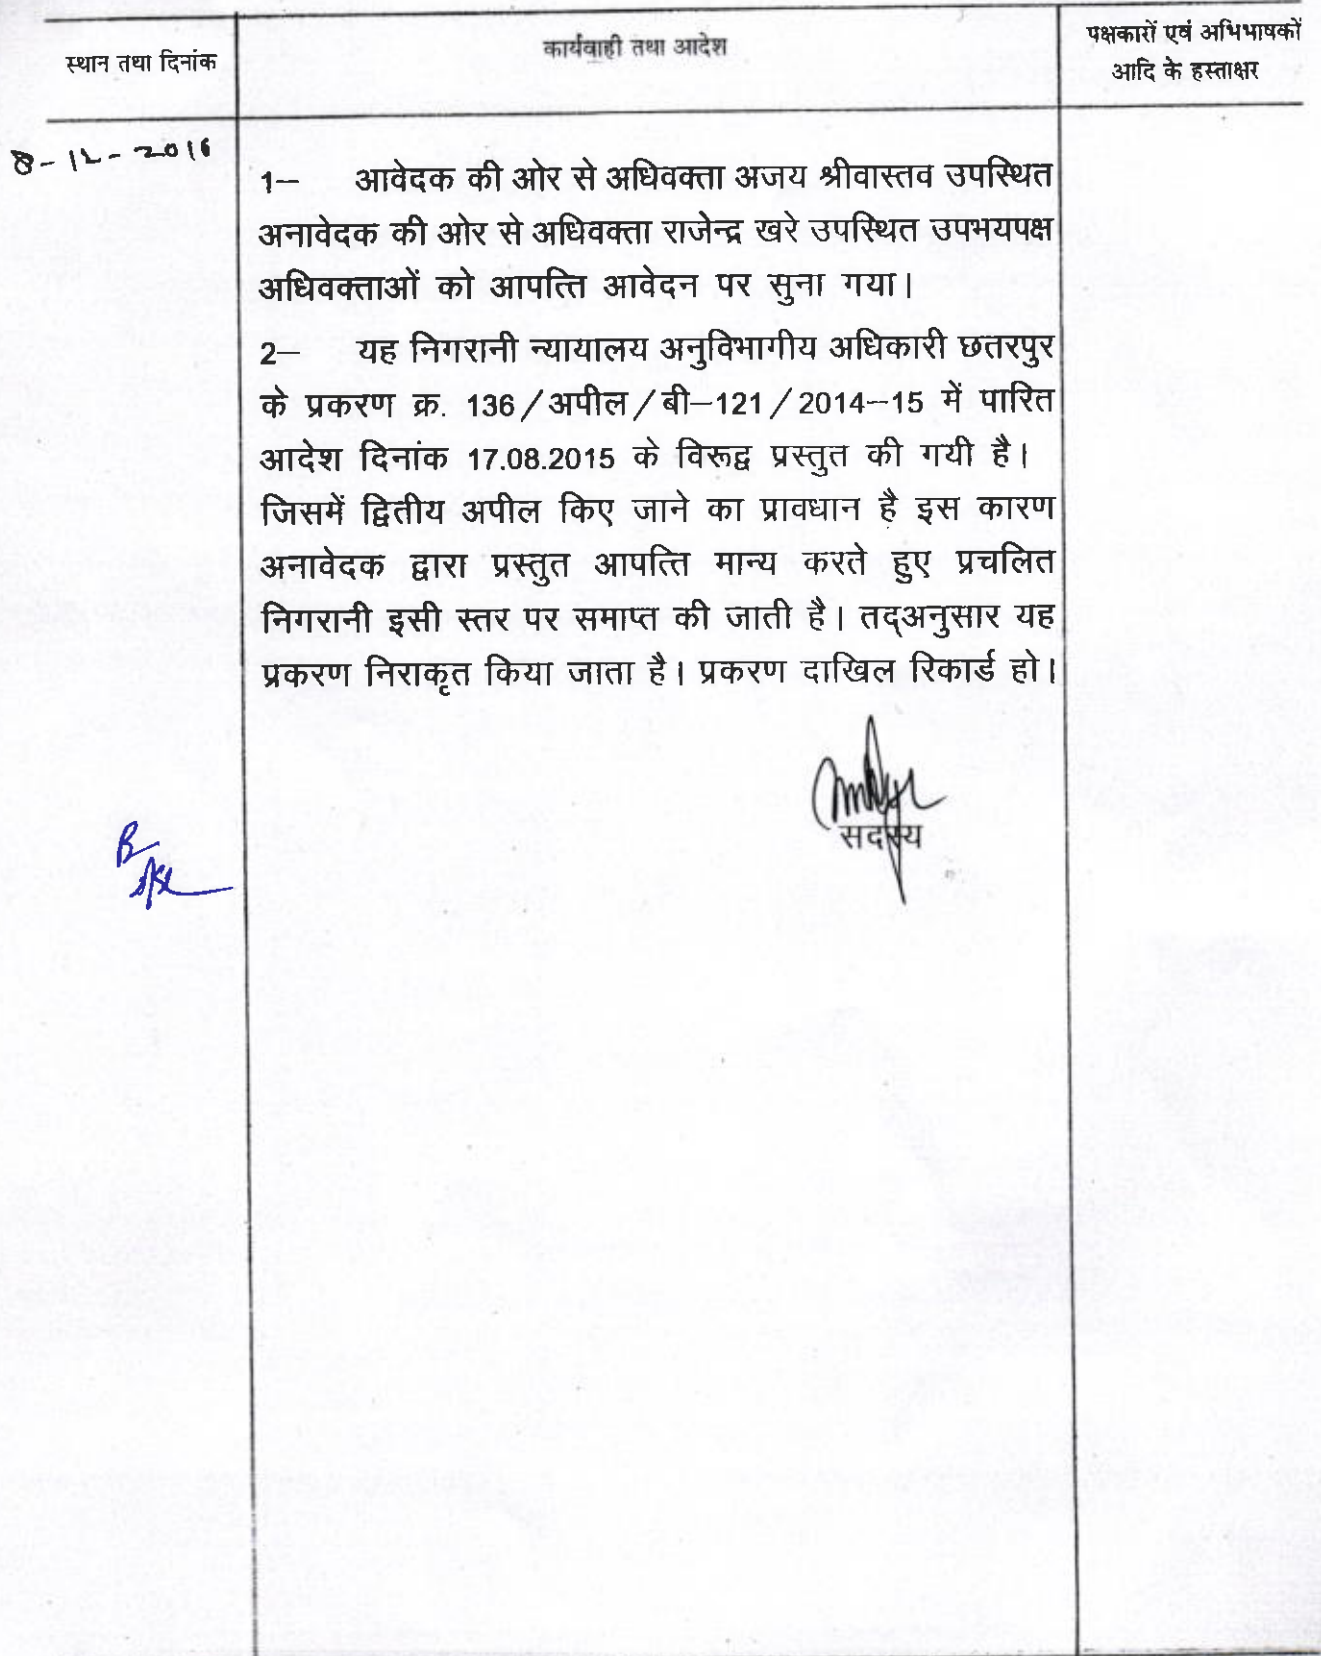 स्थान तथा दिनांक
कार्यवाही तथा आदेश
पक्षकारों एवं अभिभाषकों
आदि के हस्ताक्षर
8-12-2016
1– आवेदक की ओर से अधिवक्ता अजय श्रीवास्तव उपस्थित
अनावेदक की ओर से अधिवक्ता राजेन्द्र खरे उपस्थित उपभयपक्ष
अधिवक्ताओं को आपत्ति आवेदन पर सुना गया।
2– यह निगरानी न्यायालय अनुविभागीय अधिकारी छतरपुर
के प्रकरण क्र. 136/अपील/बी–121/2014–15 में पारित
आदेश दिनांक 17.08.2015 के विरूद्व प्रस्तुत की गयी है।
जिसमें द्वितीय अपील किए जाने का प्रावधान है इस कारण
अनावेदक द्वारा प्रस्तुत आपत्ति मान्य करते हुए प्रचलित
निगरानी इसी स्तर पर समाप्त की जाती है। तद्अनुसार यह
प्रकरण निराकृत किया जाता है। प्रकरण दाखिल रिकार्ड हो।
सदस्य